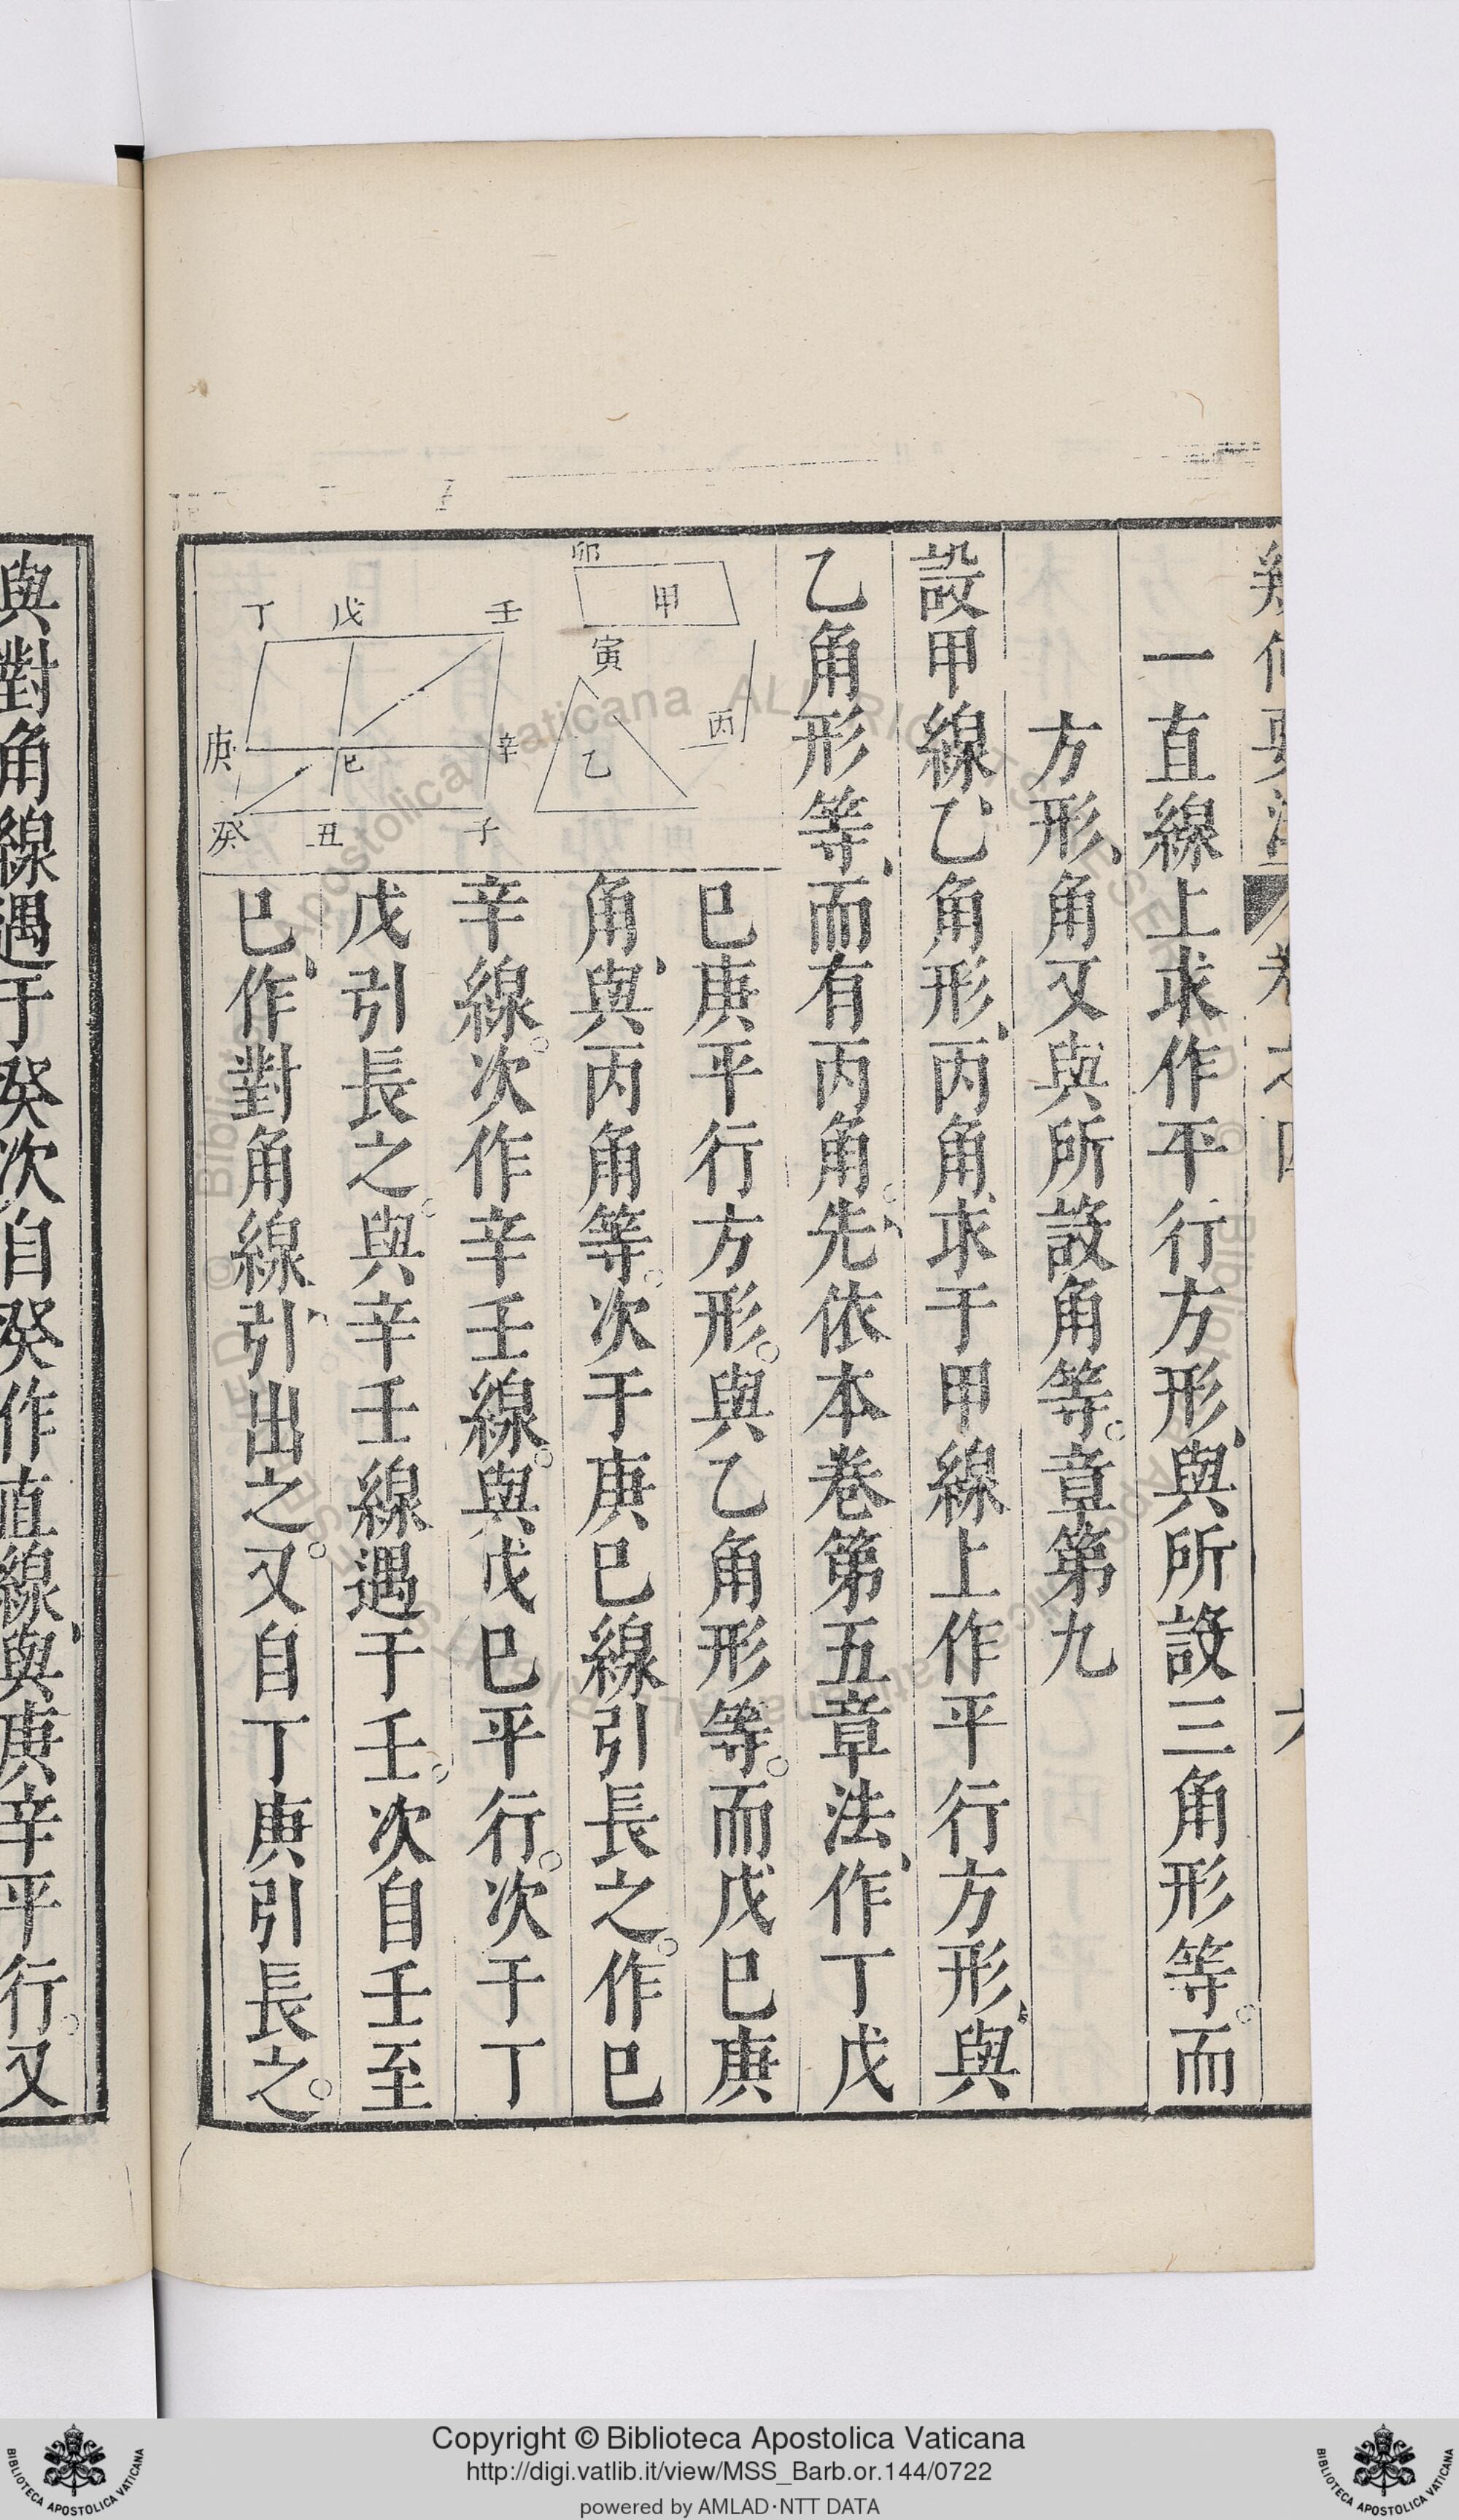 一直線上求作平行方形、與所設三角形等。而
方形、角又與所設角等。章第九
設甲線、乙角形、丙角求于甲線上作平行方形、與
乙角形等、而有丙角。先依本卷第五章法、作丁戊
巳庚平行方形。與乙角形等。而戊巳庚
角、與丙角等。次于庚巳線引長之。作巳
辛線。次作辛壬線。與戊巳平行。次于丁
戊引長之。與辛壬線遇于壬。次自壬至
巳、作對角線、引出之。又自丁庚引長之。
卯
甲
寅
丙
乙
丁 戊 壬
庚 巳 辛
癸 丑 子
與對角線遇于癸次自癸作直線、與庚辛平行。又
Copyright © Biblioteca Apostolica Vaticana
http://digi.vatlib.it/view/MSS_Barb.or.144/0722
powered by AMLAD·NTT DATA
BIBLIOTECA APOSTOLICA VATICANA
BIBLIOTECA APOSTOLICA VATICANA